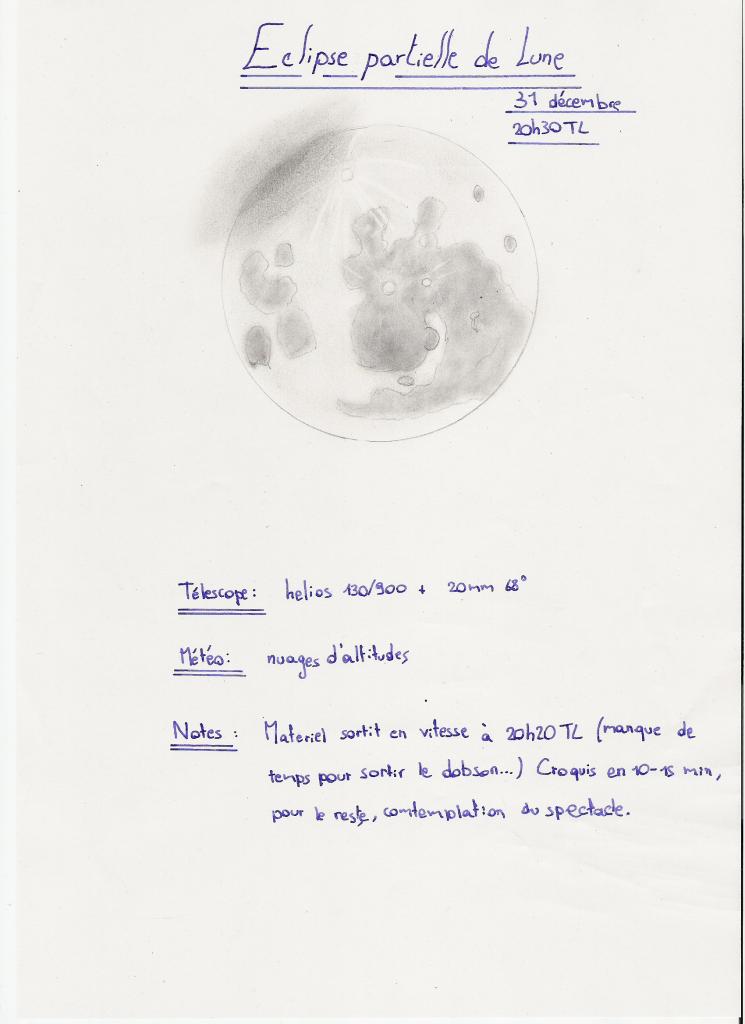 Eclipse partielle de Lune
31 décembre
20h30 TL
Télescope: helios 130/900 + 20mm 68°
Météo: nuages d'altitudes
Notes: Materiel sortit en vitesse à 20h20 TL (manque de
temps pour sortir le dobson...) Croquis en 10-15 min,
pour le reste, comtemplation du spectacle.